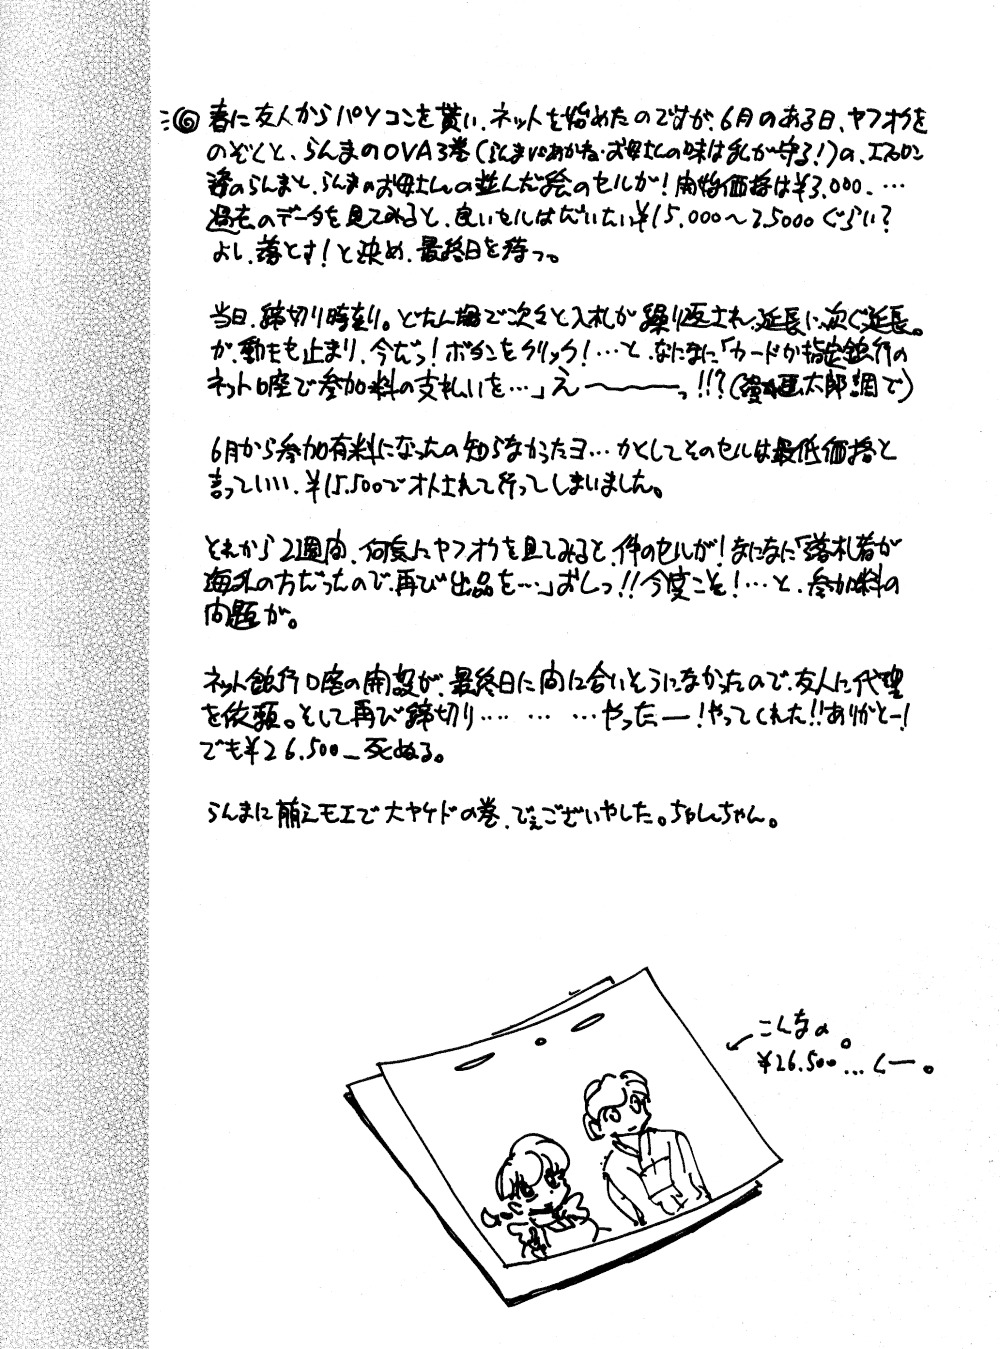 春に友人からパソコンを貰い、ネットを始めたのですが、6月のある日、ヤフオクを
のぞくと、らんまのOVA3巻(らんまvsあかね・お母さんの味は私が守る!)の、エプロン
姿のらんまと、らんまのお母さんの並んだ絵のセルが!開始価格は¥3,000、…
過去のデータを見てみると、良いセルはだいたい¥15,000〜25000ぐらい?
よし、落とす!と決め、最終日を待つ。
当日、締切り時刻。どたん場で次々と入札が繰り返され、延長に次ぐ延長。
が、動きも止まり、今だっ!ボタンをクリック!…と、なになに「カードか指定銀行の
ネット口座で参加料の支払いを…」え〜〜〜っ!!?(漫☆画太郎調で)
6月から参加有料になったの知らなかったヨ…かくしてそのセルは最低価格と
言っていい、¥15,500でオトされて行ってしまいました。
それから2週間、何気にヤフオクを見てみると、件のセルが!なになに「落札者が
海外の方だったので、再び出品を…」おしっ!!今度こそ!…と、参加料の
問題が。
ネット銀行口座の開設が、最終日に間に合いそうになかったので、友人に代理
を依頼。そして再び締切り… … …やったー!やってくれた!!ありがとー!
でも¥26,500_死ぬる。
らんまに萌えモエで大ヤケドの巻、でぇございやした。ちゃんちゃん。
こんなの。
¥26,500…くー。